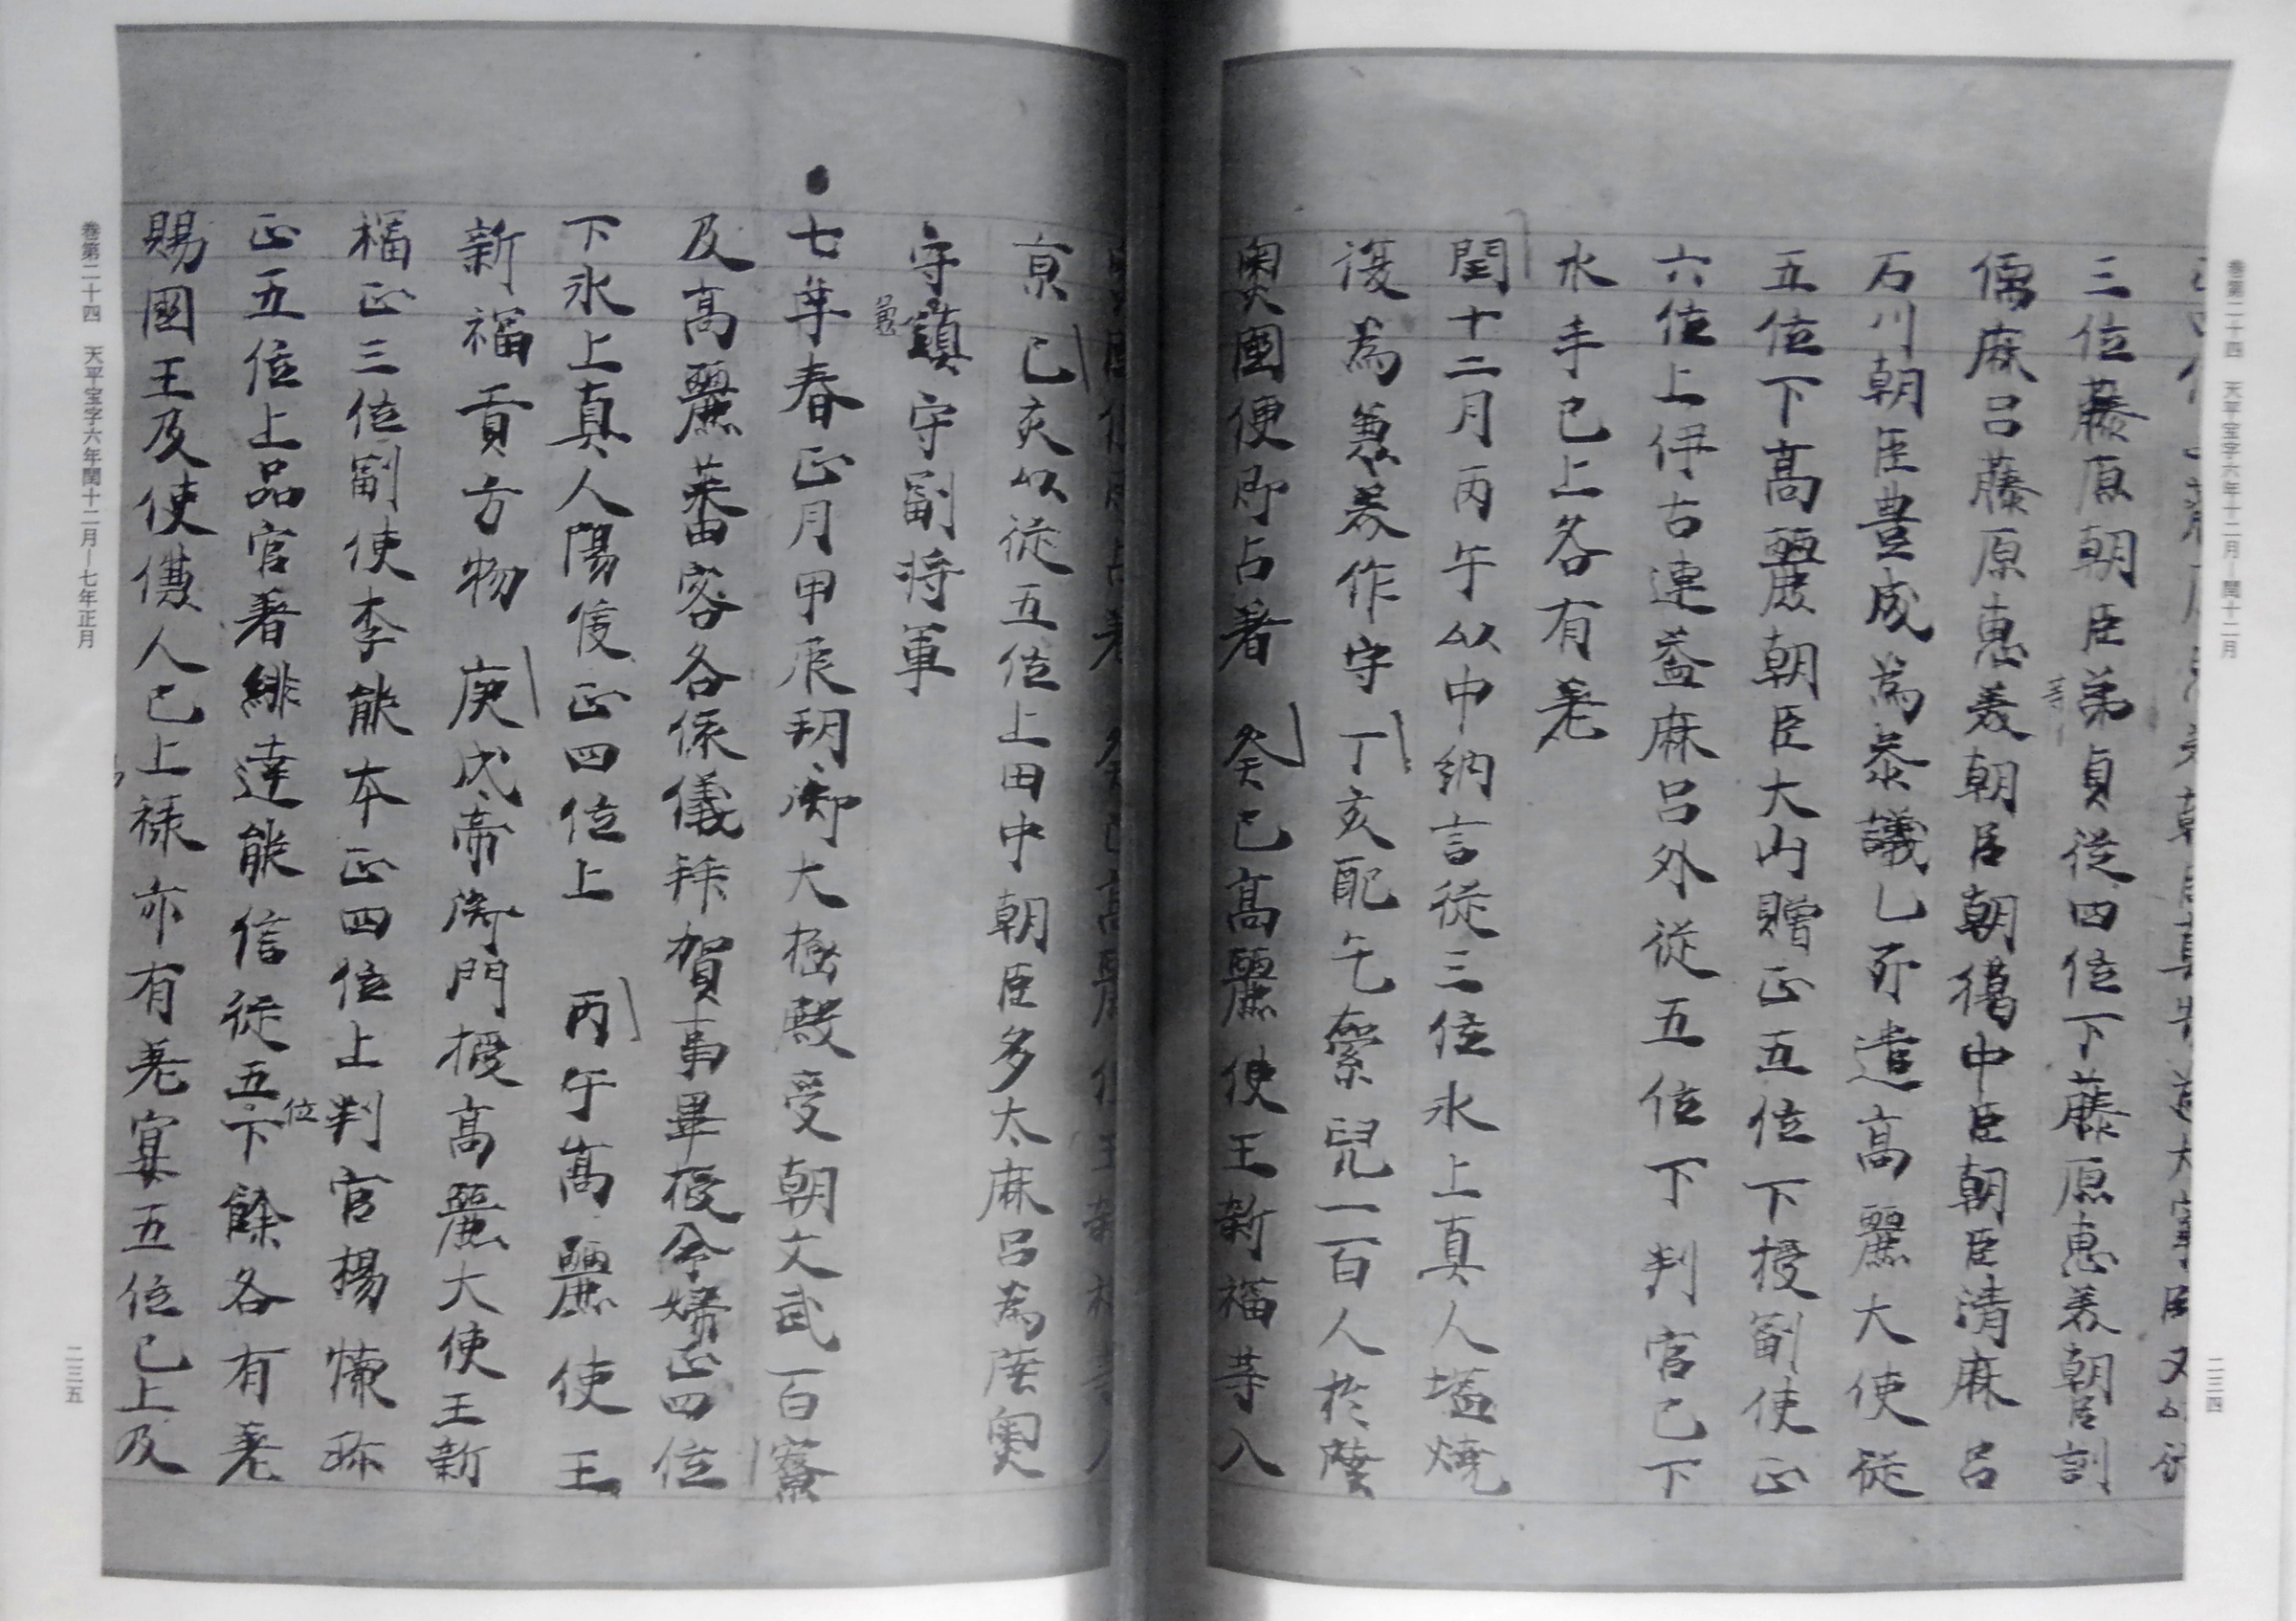 卷第二十四　天平宝字六年十二月―閏十二月
二三四
三位藤原朝臣弟貞従四位下藤原恵美朝臣訓
儒麻呂藤原恵美朝臣朝獦中臣朝臣清麻呂
石川朝臣豊成為参議乙卯遣高麗大使従
五位下高麗朝臣大山贈正五位下授副使正
六位上伊吉連益麻呂外従五位下判官已下
水手已上各有差
閏十二月丙午以中納言従三位氷上真人塩焼
復為美作守　丁亥配乞索児一百人於陸
奥國便即占著　癸巳高麗使王新福等入
京　己亥以従五位上田中朝臣多太麻呂為陸奥
守鎮守副将軍
七年春正月甲辰朔御大極殿受朝文武百寮
及高麗蕃客各依儀拝賀事畢授命婦正四位
下氷上真人陽侯正四位上　丙午高麗使王
新福貢方物　庚戌帝御閤門授高麗大使王新
福正三位副使李能本正四位上判官楊懐珎
正五位上品官著緋達能信従五位下餘各有差
賜國王及使傔人已上禄亦有差宴五位已上及
卷第二十四　天平宝字六年閏十二月―七年正月
二三五